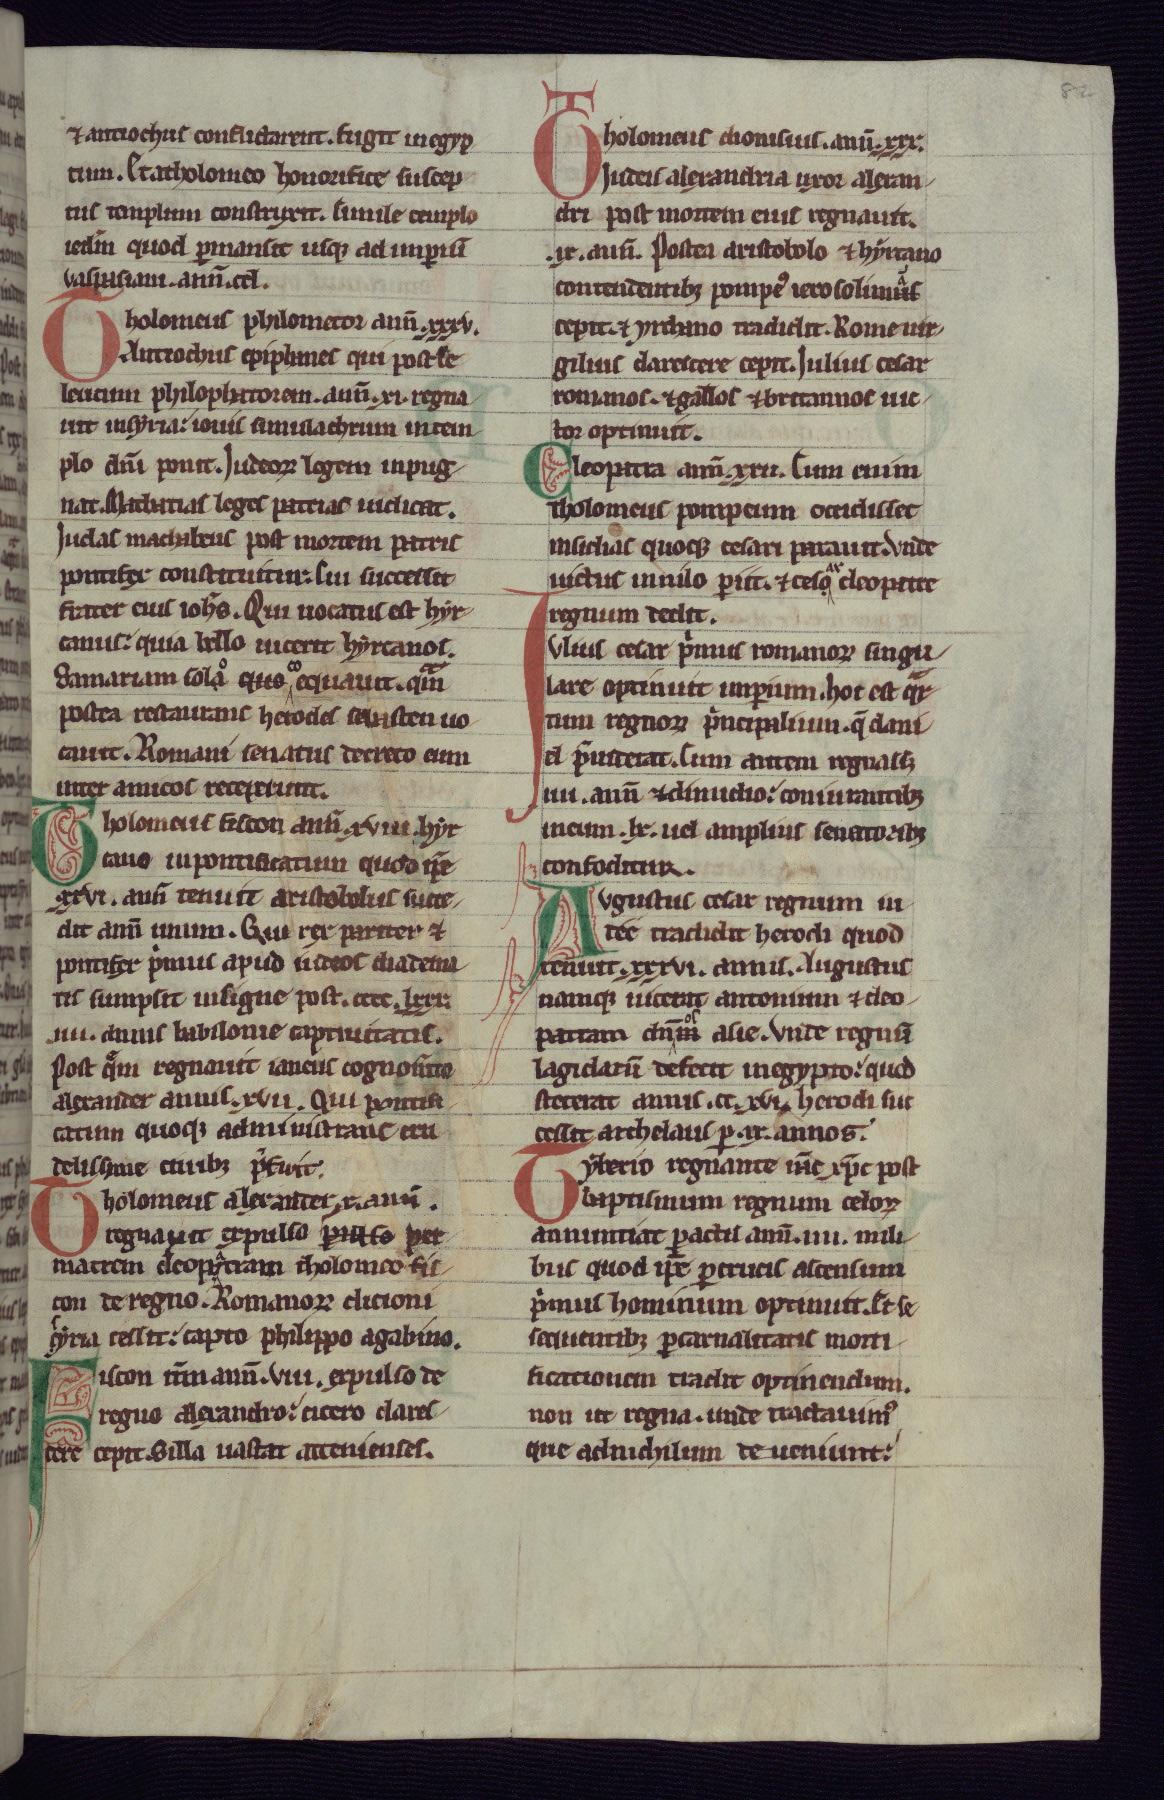 ⁊ antiochus conflictarent. fugit in egyp
tum. Et a tholomeo honorifice suscep
tus templum construxit. simile templo
iedm̄ quod ꝑmansit usqꝫ ad imperiū
vaspasiani. ann̄. ccl.
Tholomeus philometor ann̄. xxxv.
Antiochus epiphanes qui post se
leucum philophatorem. ann̄. xi. regna
uit in syria: iouis simulachrum in tem
plo dn̄i ponit. Iudeoꝝ legem inpug
nat. Mathatias leges patrias uidicat.
Iudas machabeus post mortem patris
pontifex constituitur: Cui successit
frater eius iohs̄. Qui uocatus est hyr
canus: quia bello uicerit hyrcanos.
Samariam solo quoqꝫ equauit. quam
postea restaurans herodes sebasten uo
cauit. Romani senatus decreto eum
inter amicos receperunt.
Tholomeus fiscon ann̄. xviii. hyr
cano in pontificatum quod ip̄e
xxvi. ann̄ tenuit aristobolus succe
dit ann̄ unum. Qui rex pariter ⁊
pontifex pͥmus apud iudeos diadema
tis sumpsit insigne post. cccc. lxxx
iiii. annis babilonie captiuitatis.
Post quem regnauit ianeus cognomento
alexander annis. xvii. Qui pontifi
catum quoqꝫ administrans cru
delissime ciuibꝫ prefuit.
Tholomeus alexander. x. ann̄.
regnauit expulso per
matrem cleopatram tholomeo fis
con de regno. Romanoꝝ dicioni
syria cessit: capto philippo a gabino.
Fiscon itm̄ ann̄. viii. expulso de
regno alexandro: cicero clares
cere cepit. Silla uastat attenienses.
Tholomeus dionisius. ann̄. xxx.
Iudeis alexandria uxor alexan
dri post mortem eius regnauit.
.ix. ann̄. Postea aristobolo ⁊ hyrcano
contendentibꝫ pompeꝰ ierosolimas
cepit. ⁊ yrchano tradidit. Rome uir
gilius clarescere cepit. Iulius cesar
romanos. ⁊ gallos ⁊ britannos uic
tor optinuit.
Cleopatra ann̄. xxii. Cum enim
tholomeus pompeium occidisset
insidias quoqꝫ cesari parauit. Vnde
uictus in nilo ꝑiit. ⁊ cesar cleopatre
regnum dedit.
Iulius cesar pͥmus romanoꝝ singu
lare optinuit imꝑium. hoc est quar
tum regnoꝝ pͥncipalium. q̄ dani
el pͥuiderat. Cum autem regnassꝫ
iiii. ann̄ ⁊ dimidio: coniurantibꝫ
in eum. lx. uel amplius senatoribꝫ
confoditur.
Augustus cesar regnum iu
dee tradidit herodi quod
tenuit. xxxvi. annis. Augustus
namqꝫ uicerat antonium ⁊ cleo
patram dn̄os asie. Vnde regnū
lagidarū defecit in egypto: quod
steterat annis. cc. xvi. herodi suc
cessit archelaus ꝑ. ix. annos.
Tyberio regnante ih̄c xp̄c post
baptismum regnum celoꝝ
annuntiat ꝑactis ann̄. iiii. mili
bus quod ip̄e ꝑ crucis ascensum
pͥmus hominum optinuit. Et se
sequentibꝫ ꝑ carnalitatis morti
ficationem tradit optinendum.
non ut regna. unde tractauimꝰ
que ad nichilum deueniunt: